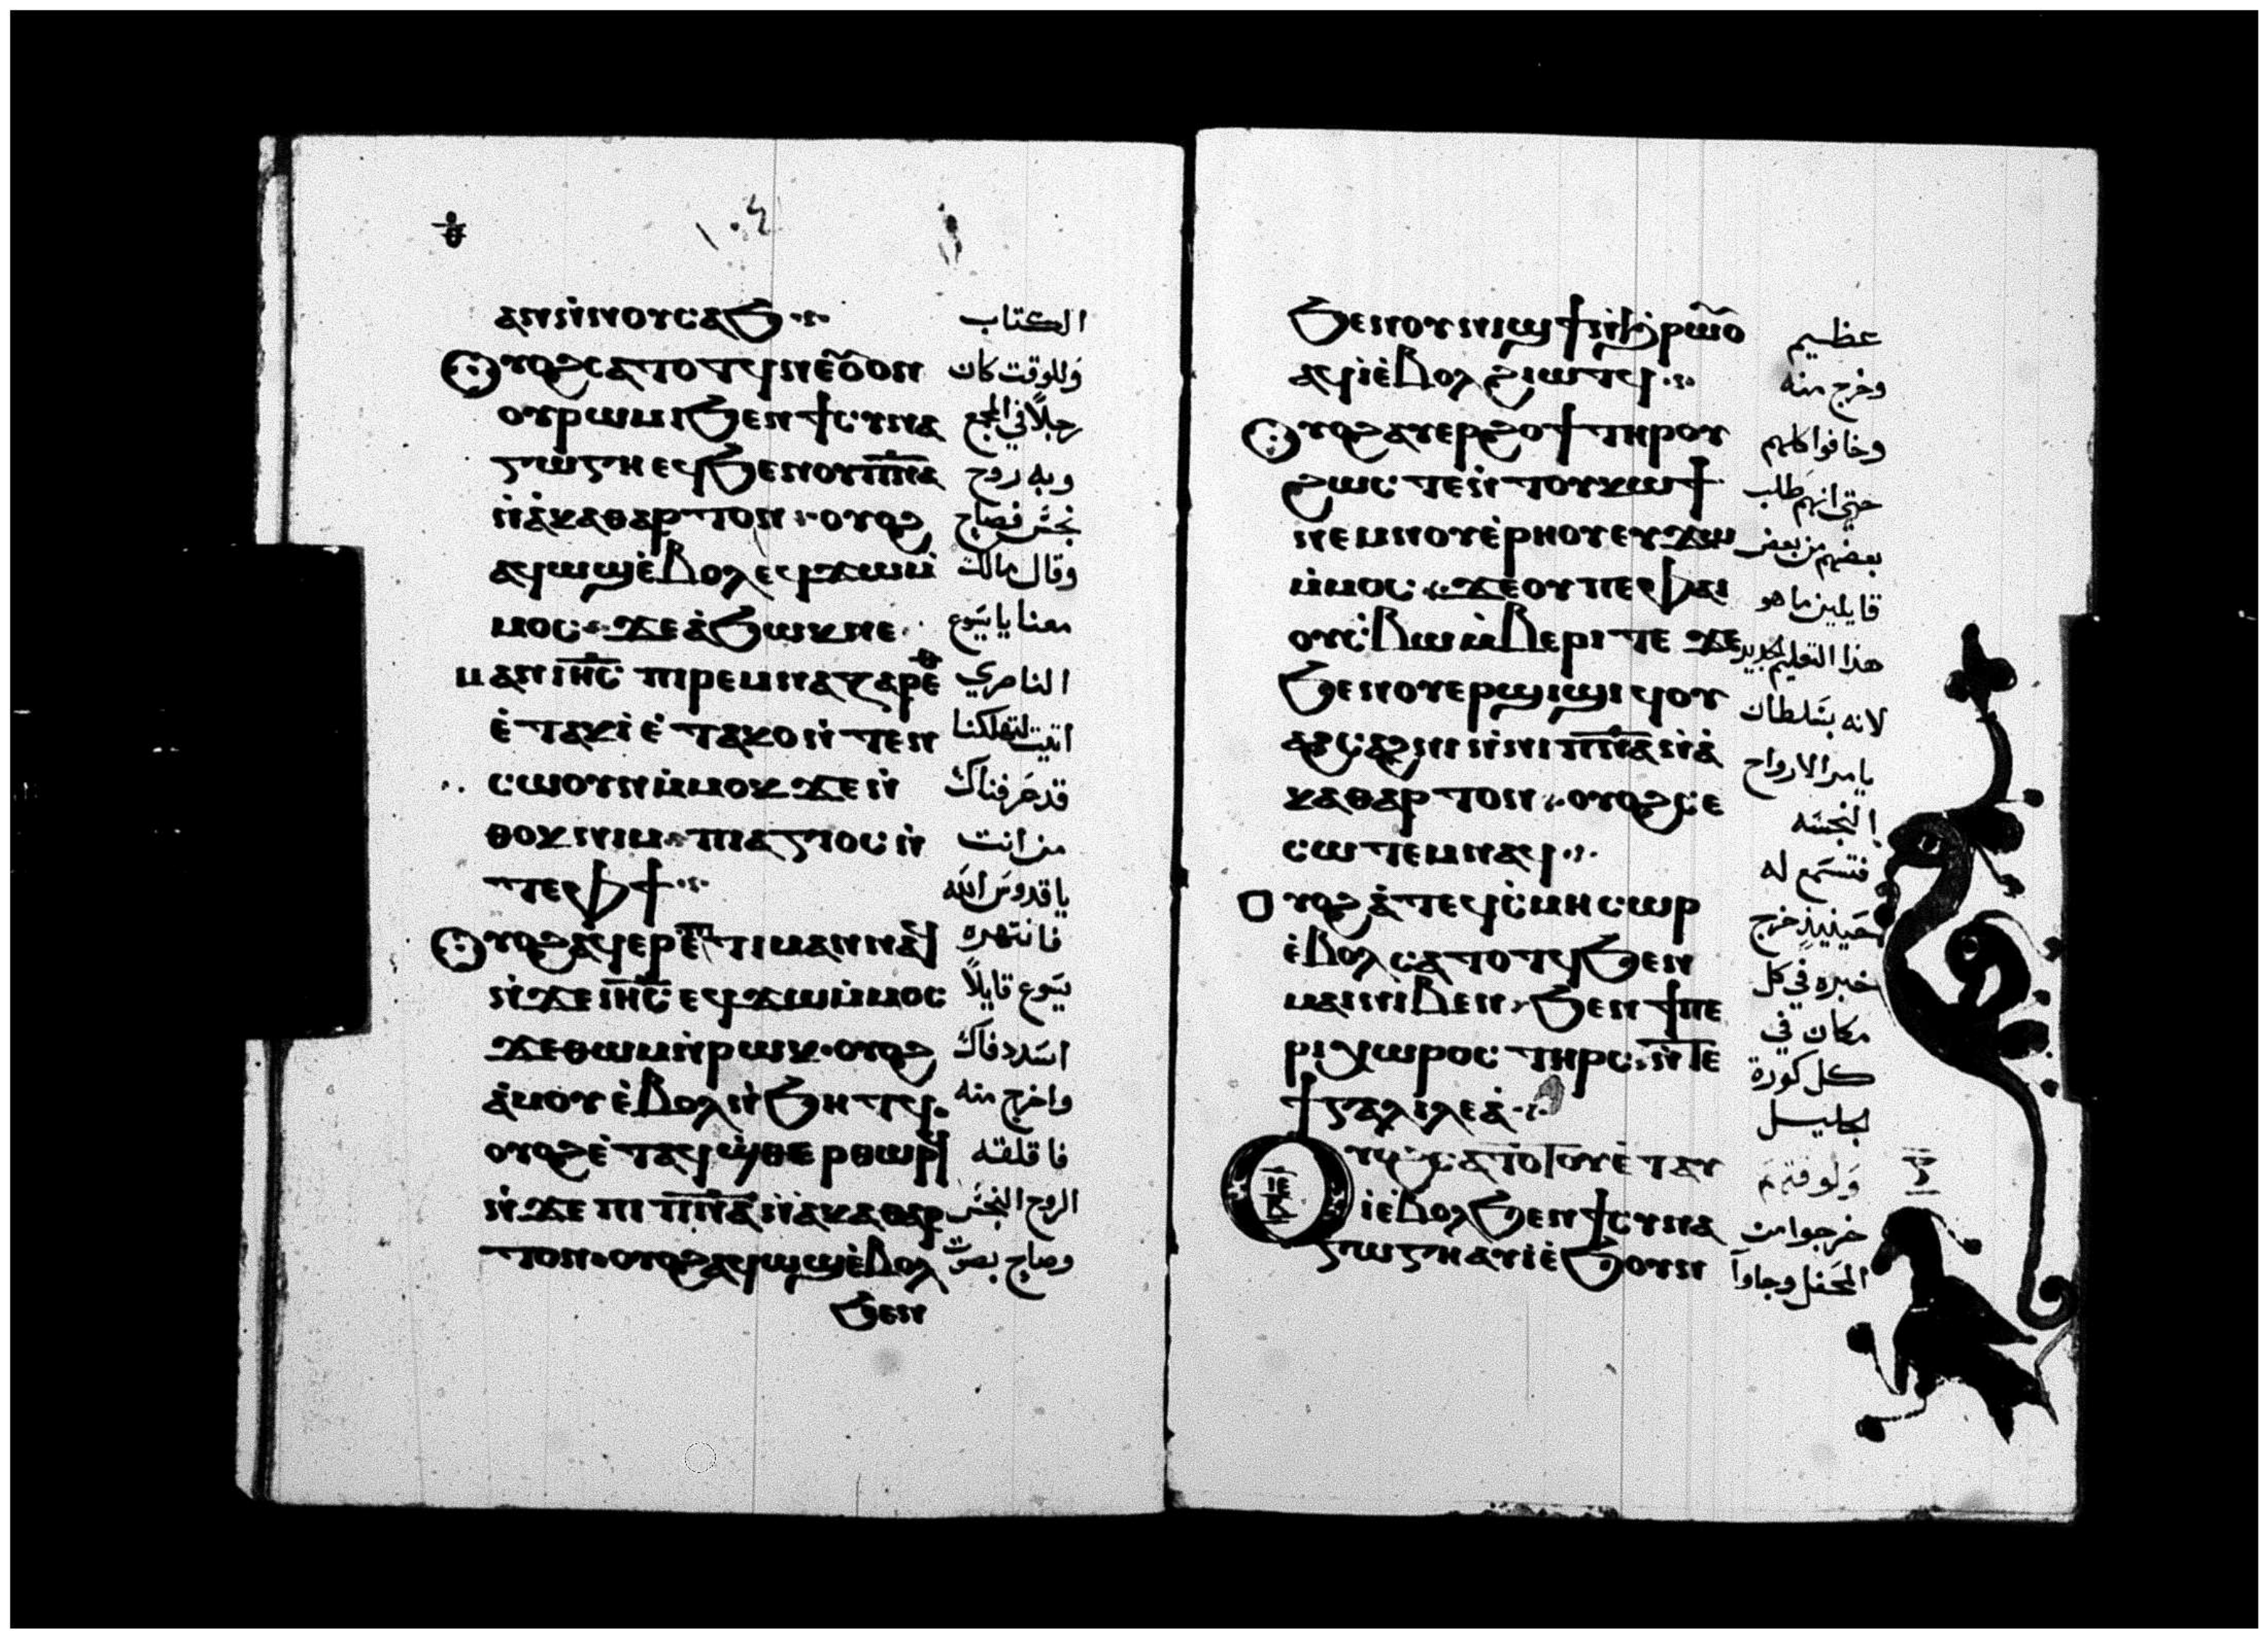 ⲑ
١٠٤
ⲁⲛⲛⲓⲛⲟⲩⲥⲁϧ الكتاب
ⲟⲩⲟϩⲥⲁⲧⲟⲧϥⲛⲉⲟⲩⲟⲛ وللوقت كان
ⲟⲩⲣⲱⲙⲓϧⲉⲛϯⲥⲩⲛⲁ رجلاً في المجمع
ⲅⲱⲅⲏⲉϥϧⲉⲛⲟⲩⲡ̅ⲛ̅ⲁ̅ وبه روح
ⲛ̀ⲁ̀ⲕⲁⲑⲁⲣⲧⲟⲛ ⲟⲩⲟϩ نجس فصاح
ⲁϥⲱϣⲉ̀ⲃⲟⲗⲉϥϫⲱⲙ̀ وقال مالك
ⲙⲟⲥ ϫⲉⲁ̀ϧⲱⲕⲛⲉ معنا يا يسوع
ⲙⲁⲛⲓⲏ̅ⲥ̅ ⲡⲓⲣⲉⲙⲛⲁⲍⲁⲣⲉⲑ الناصري
ⲉ̀ⲧⲁⲕⲓ̀ⲉ̀ⲧⲁⲕⲟⲛ̀ⲧⲉⲛ اتيت لتهلكنا
ⲥⲱⲟⲩⲛⲙ̀ⲙⲟⲕϫⲉⲛ̀ قد عرفناك
ⲑⲟⲕⲛⲓⲙ ⲡⲓⲁⲅⲓⲟⲥⲛ̀ من انت
ⲧⲉⲫϯ يا قدوس الله
ⲟⲩⲟϩⲁϥⲉⲣⲉⲡⲓⲧⲓⲙⲁⲛⲛⲁϥ فانتهره
ⲛ̀ϫⲉⲓⲏ̅ⲥ̅ ⲉϥϫⲱⲙ̀ⲙⲟⲥ يسوع قايلاً
ϫⲉⲑⲱⲙⲛ̀ⲣⲱⲕ ⲟⲩⲟϩ اسدد فاك
ⲁ̀ⲙⲟⲩⲉ̀ⲃⲟⲗⲛ̀ϧⲏⲧϥ واخرج منه
ⲟⲩⲟϩⲉ̀ⲧⲁϥϣ̀ⲑⲉⲣⲑⲱⲣϥ فاقلقه
ⲛ̀ϫⲉⲡⲓⲡ̅ⲛ̅ⲁ̅ⲛ̀ⲁⲕⲁⲑⲁⲣ الروح النجس
ⲧⲟⲛ ⲟⲩⲟϩⲁϥⲱϣⲉ̀ⲃⲟⲗ وصاح بصوت
ϧⲉⲛ
ϧⲉⲛⲟⲩⲛⲓϣϯⲛ̀ϧ̀ⲣⲱⲟⲩ عظيم
ⲁϥⲓ̀ⲉ̀ⲃⲟⲗϩⲓⲱⲧϥ وخرج منه
ⲟⲩⲟϩⲁⲩⲉⲣϩⲟϯⲧⲏⲣⲟⲩ وخافوا كلهم
ϩⲱⲥⲧⲉⲛ̀ⲧⲟⲩⲕⲱϯ حتى انهم طلب
ⲛⲉⲙⲛⲟⲩⲉ̀ⲣⲏⲟⲩⲉⲩϫⲱ بعضهم من بعض
ⲙ̀ⲙⲟⲥ ϫⲉⲟⲩⲡⲉⲫⲁⲓ قايلين ما هو
ⲟⲩⲥ̀ⲃⲱⲙ̀ⲃⲉⲣⲓⲧⲉ ϫⲉ هذا التعليم الجديد
ϧⲉⲛⲟⲩⲉⲣϣⲓϣⲓϥⲟⲩ لانه بسلطان
ⲁϩⲥⲁϩⲛⲓⲛ̀ⲛⲓⲡ̅ⲛ̅ⲁ̅ⲛ̀ⲁ̀ يامر الارواح
ⲕⲁⲑⲁⲣⲧⲟⲛ ⲟⲩⲟϩⲥⲉ النجسه
ⲥⲱⲧⲉⲙⲛⲁϥ فتسمع له
ⲟⲩⲟϩⲁ̀ⲧⲉϥⲥ̀ⲙⲏⲥⲱⲣ حينيذٍ خرج
ⲉ̀ⲃⲟⲗⲥⲁⲧⲟⲧϥϧⲉⲛ خبره في كل
ⲙⲁⲓⲛⲓⲃⲉⲛ ϧⲉⲛϯⲡⲉ مكان في
ⲣⲓⲭⲱⲣⲟⲥⲧⲏⲣⲥ ⲛ̀ⲧⲉ كل كورة
ϯⲅⲁⲗⲓⲗⲉⲁ̀ الجليل
ⲟⲩⲟϩⲥⲁⲧⲟⲧⲟⲩⲉ̀ⲧⲁⲩ ولوقتهم
ⲓⲉ
ⲓ̀ⲉ̀ⲃⲟⲗϧⲉⲛϯⲥⲩⲛⲁ خرجوا من
ⲅⲱⲅⲏⲁⲩⲓ̀ⲉ̀ϧⲟⲩⲛ المحفل وجاوا